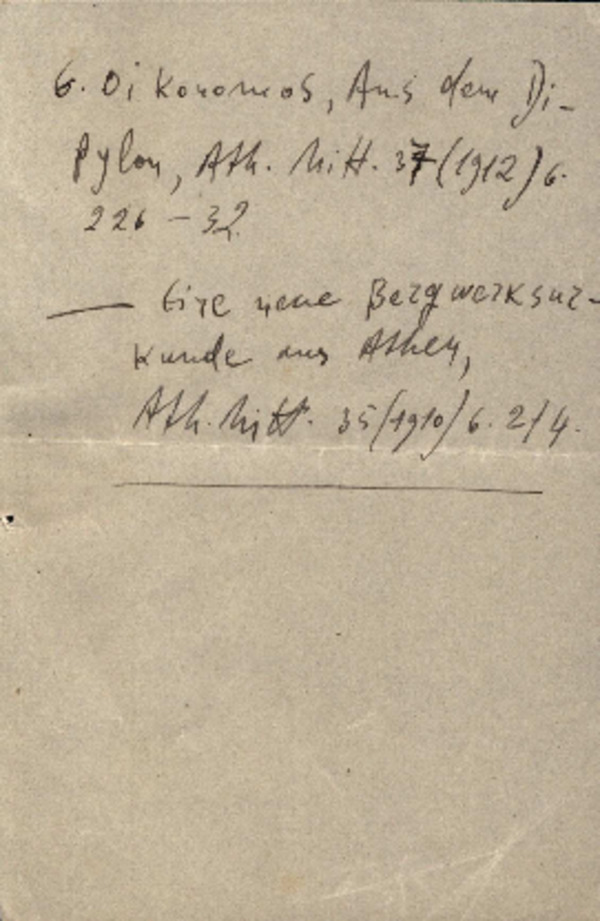 G. Oikonomos, Aus dem Di-
pylon, Ath. Mitt. 37 (1912) σ.
226 - 32
— Eine neue Bergwerksur-
kunde aus Athen,
Ath. Mitt. 35 (1910) σ. 274.